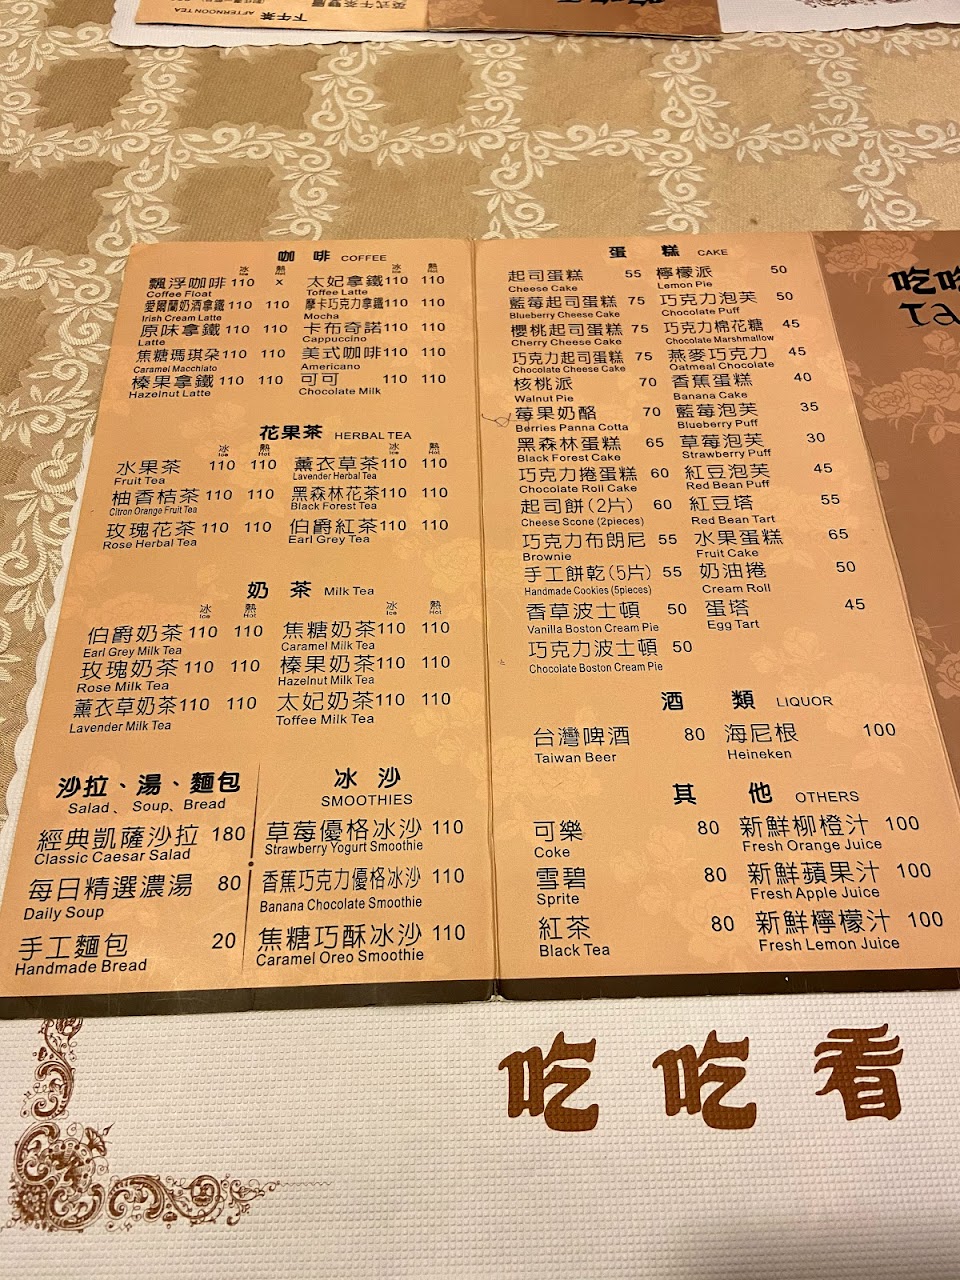 下午茶 AFTERNOON TEA
咖 啡 COFFEE
冰 熱 冰 熱
Ice Hot Ice Hot
飄浮咖啡 110 x 太妃拿鐵 110 110
Coffee Float Toffee Latte
愛爾蘭奶酒拿鐵 110 110 摩卡巧克力拿鐵 110 110
Irish Cream Latte Mocha
原味拿鐵 110 110 卡布奇諾 110 110
Latte Cappuccino
焦糖瑪琪朵 110 110 美式咖啡 110 110
Caramel Macchiato Americano
榛果拿鐵 110 110 可可 110 110
Hazelnut Latte Chocolate Milk
花果茶 HERBAL TEA
冰 熱 冰 熱
Ice Hot Ice Hot
水果茶 110 110 薰衣草茶 110 110
Fruit Tea Lavender Herbal Tea
柚香桔茶 110 110 黑森林花茶 110 110
Citron Orange Fruit Tea Black Forest Tea
玫瑰花茶 110 110 伯爵紅茶 110 110
Rose Herbal Tea Earl Grey Tea
奶 茶 Milk Tea
冰 熱 冰 熱
Ice Hot Ice Hot
伯爵奶茶 110 110 焦糖奶茶 110 110
Earl Grey Milk Tea Caramel Milk Tea
玫瑰奶茶 110 110 榛果奶茶 110 110
Rose Milk Tea Hazelnut Milk Tea
薰衣草奶茶 110 110 太妃奶茶 110 110
Lavender Milk Tea Toffee Milk Tea
沙拉、湯、麵包
Salad、Soup、Bread
經典凱薩沙拉 180
Classic Caesar Salad
每日精選濃湯 80
Daily Soup
手工麵包 20
Handmade Bread
冰 沙
SMOOTHIES
草莓優格冰沙 110
Strawberry Yogurt Smoothie
香蕉巧克力優格冰沙 110
Banana Chocolate Smoothie
焦糖巧酥冰沙 110
Caramel Oreo Smoothie
蛋 糕 CAKE
起司蛋糕 55 檸檬派 50
Cheese Cake Lemon Pie
藍莓起司蛋糕 75 巧克力泡芙 50
Blueberry Cheese Cake Chocolate Puff
櫻桃起司蛋糕 75 巧克力棉花糖 45
Cherry Cheese Cake Chocolate Marshmallow
巧克力起司蛋糕 75 燕麥巧克力 45
Chocolate Cheese Cake Oatmeal Chocolate
核桃派 70 香蕉蛋糕 40
Walnut Pie Banana Cake
莓果奶酪 70 藍莓泡芙 35
Berries Panna Cotta Blueberry Puff
黑森林蛋糕 65 草莓泡芙 30
Black Forest Cake Strawberry Puff
巧克力捲蛋糕 60 紅豆泡芙 45
Chocolate Roll Cake Red Bean Puff
起司餅(2片) 60 紅豆塔 55
Cheese Scone (2pieces) Red Bean Tart
巧克力布朗尼 55 水果蛋糕 65
Brownie Fruit Cake
手工餅乾(5片) 55 奶油捲 50
Handmade Cookies (5pieces) Cream Roll
香草波士頓 50 蛋塔 45
Vanilla Boston Cream Pie Egg Tart
巧克力波士頓 50
Chocolate Boston Cream Pie
酒 類 LIQUOR
台灣啤酒 80 海尼根 100
Taiwan Beer Heineken
其 他 OTHERS
可樂 80 新鮮柳橙汁 100
Coke Fresh Orange Juice
雪碧 80 新鮮蘋果汁 100
Sprite Fresh Apple Juice
紅茶 80 新鮮檸檬汁 100
Black Tea Fresh Lemon Juice
吃吃看